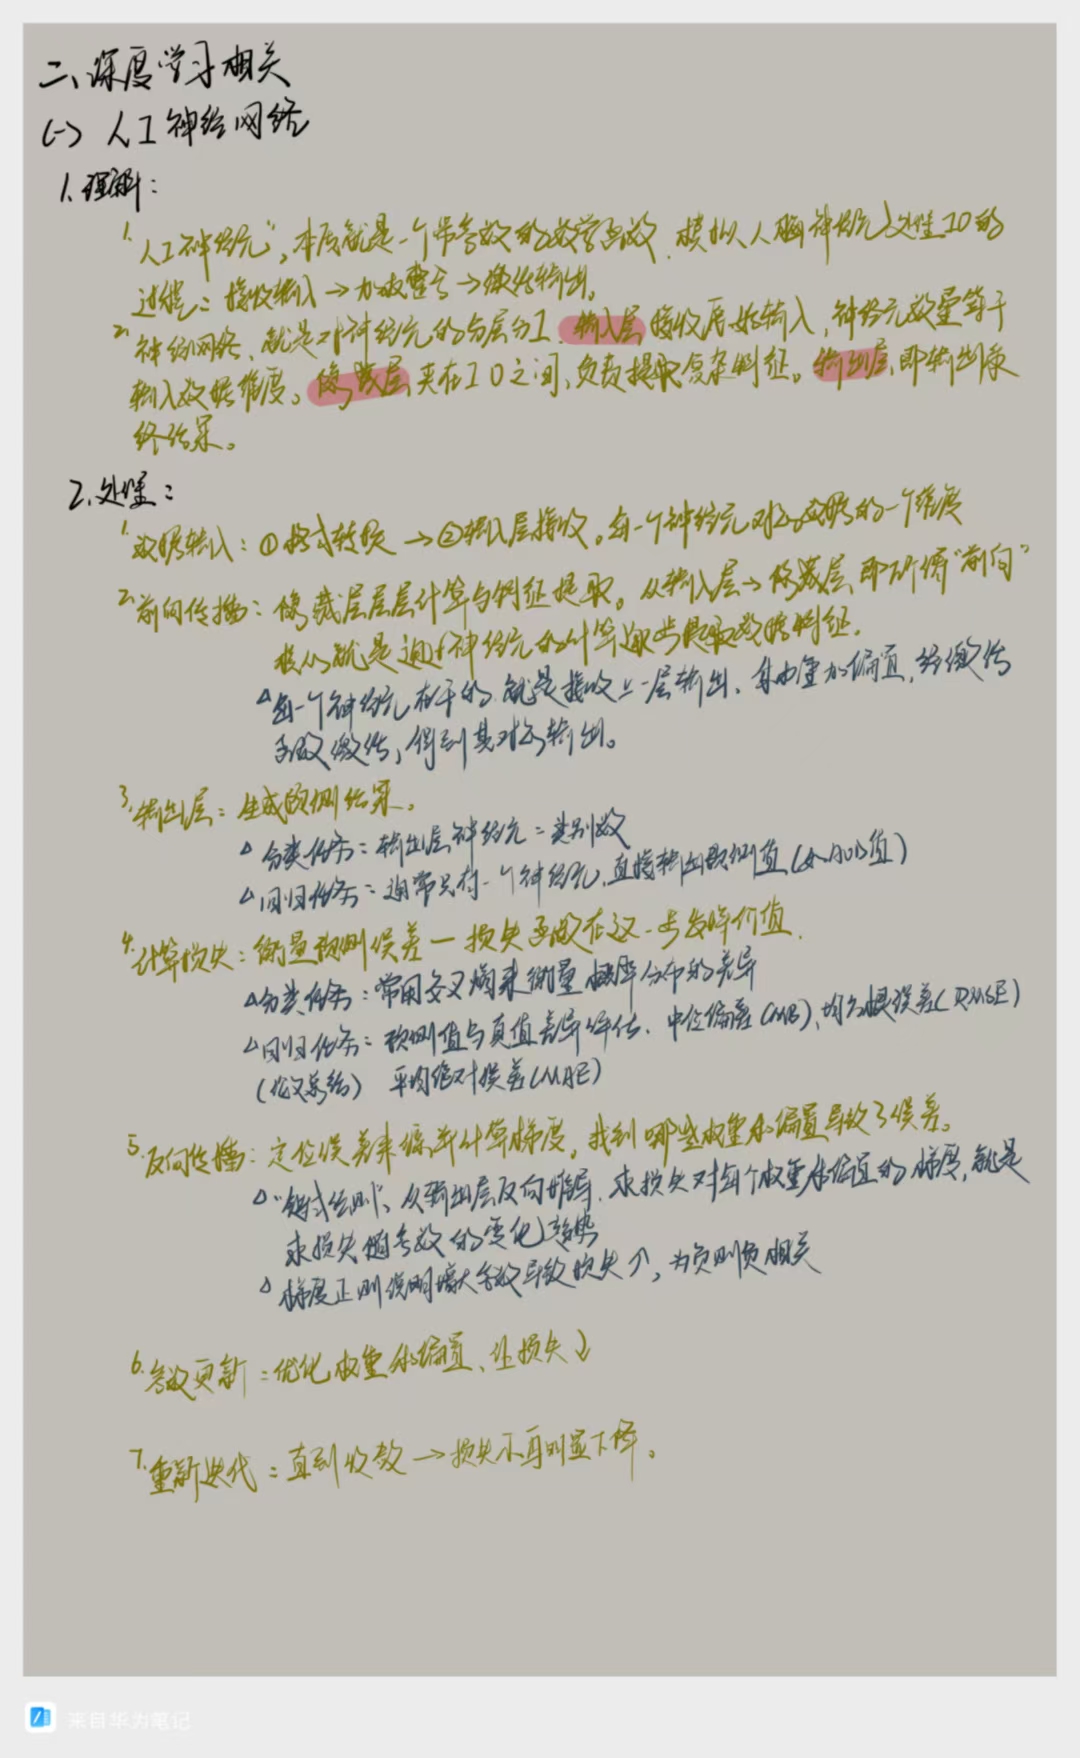 二、深度学习相关
(一) 人工神经网络
1. 理解：
1. "人工神经元"，本质就是一个带参数的数学函数，模拟人脑神经元处理IO的
过程：接收输入→加权整合→激活输出。
2. 神经网络，就是对神经元的分层分工，输入层接收原始输入，神经元数量等于
输入数据维度。隐藏层，夹在IO之间，负责提取复杂特征。输出层，即输出最
终结果。
2. 处理：
1. 数据输入：①格式转换→②输入层接收。每一个神经元对应数据的一个维度
2. 前向传播：隐藏层层层计算与特征提取。从输入层→隐藏层，即所谓"前向"
核心就是通过神经元的计算逐步提取数据特征。
△每一个神经元在干的，就是接收上一层输出，乘权重加偏置，经激活
函数激活，得到其对应输出。
3. 输出层：生成预测结果。
△分类任务：输出层神经元=类别数
△回归任务：通常只有一个神经元，直接输出预测值(如AOD值)
4. 计算损失：衡量预测误差—损失函数在这一步发挥价值.
△分类任务：常用交叉熵来衡量概率分布的差异
△回归任务：预测值与真值差异评估. 中位偏差(MB)，均方根误差(RMSE)
(论文总结) 平均绝对误差(MAE)
5. 反向传播：定位误差来源并计算梯度，找到哪些权重和偏置导致了误差。
△"链式法则"，从输出层反向推导，求损失对每个权重和偏置的梯度，就是
求损失随参数的变化趋势
△梯度正则说明增大参数导致损失↑，为负则负相关
6. 参数更新：优化权重和偏置、让损失↓
7. 重新迭代：直到收敛→损失不再明显下降。
来自华为笔记